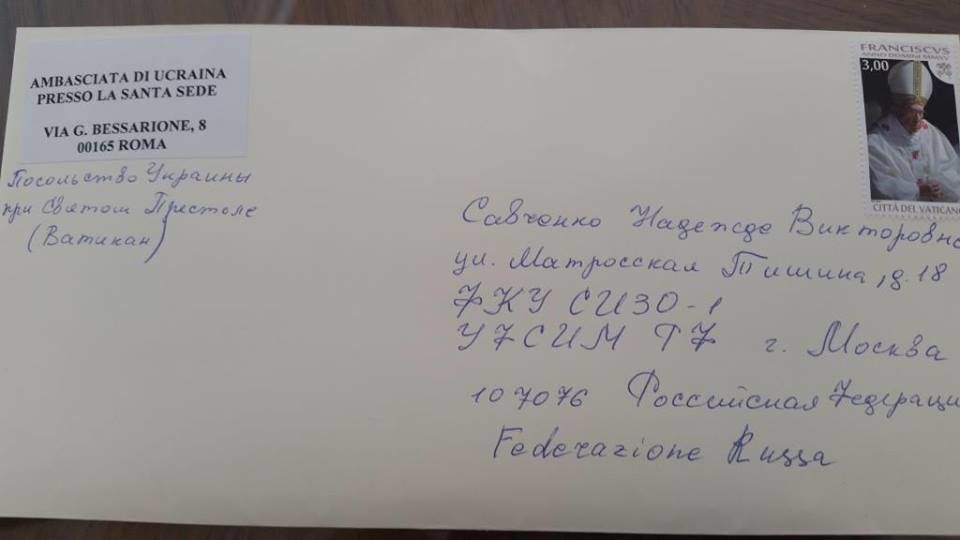 AMBASCIATA DI UCRAINA
PRESSO LA SANTA SEDE
VIA G. BESSARIONE, 8
00165 ROMA
Посольство Украины
при Святом Престоле
(Ватикан)
FRANCISCVS
ANNO DOMINI MMXV
3,00
CITTÀ DEL VATICANO
Савченко Надежде Викторовне
ул. Матросская Тишина, д. 18
ФКУ СИЗО-1
УФСИМ РФ г. Москва
107076 Российская Федераци
Federazione Russa